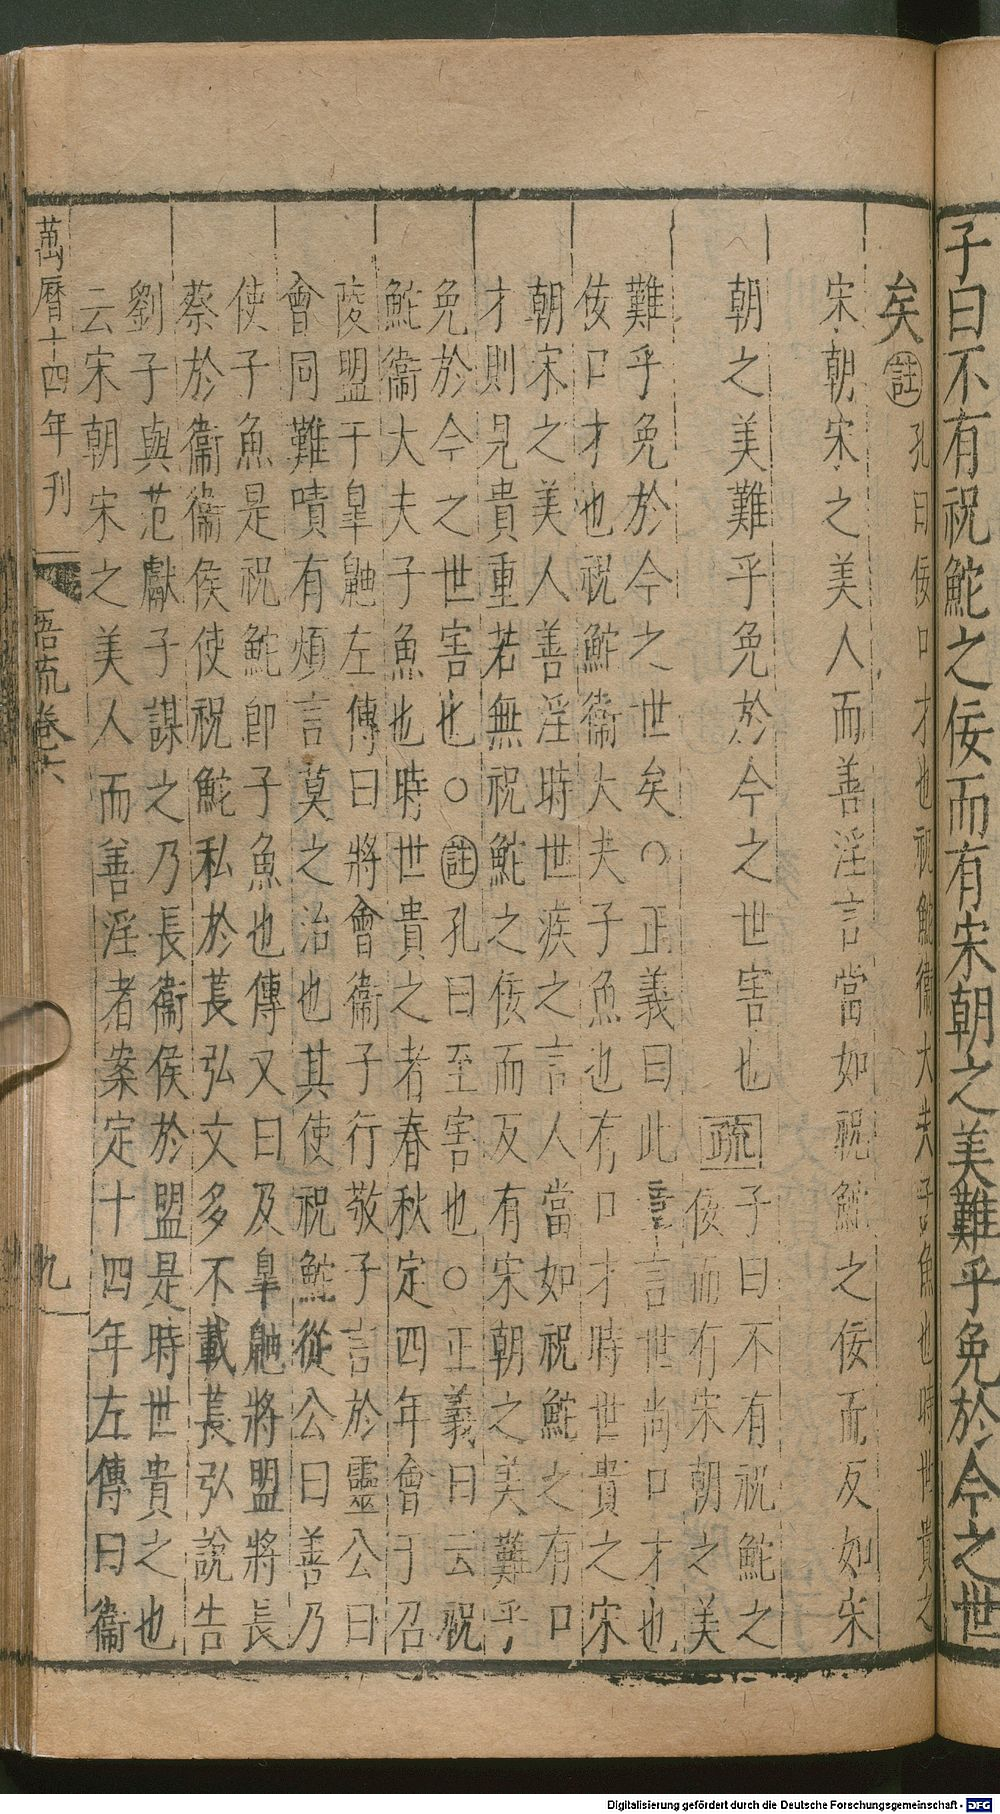 子曰不有祝鮀之佞而有宋朝之美難乎免於今之世
矣註孔曰佞口才也祝鮀衞大夫子魚也時世貴之
宋朝宋之美人而善淫言當如祝鮀之佞而反如宋
朝之美難乎免於今之世害也疏子曰不有祝鮀之
佞而有宋朝之美
難乎免於今之世矣○正義曰此章言世尚口才也
佞口才也祝鮀衞大夫子魚也有口才時世貴之宋
朝宋之美人善淫時世疾之言人當如祝鮀之有口
才則見貴重若無祝鮀之佞而反有宋朝之美難乎
免於今之世害也○註孔曰至害也○正義曰云祝
鮀衞大夫子魚也時世貴之者春秋定四年會于召
陵盟于臯鼬左傳曰將會衞子行敬子言於靈公曰
會同難嘖有煩言莫之治也其使祝鮀從公曰善乃
使子魚是祝鮀卽子魚也傳又曰及臯鼬將盟將長
蔡於衞衞侯使祝鮀私於萇弘文多不載萇弘說告
劉子與范獻子謀之乃長衞侯於盟是時世貴之也
云宋朝宋之美人而善淫者案定十四年左傳曰衞
萬曆十四年刊
語疏卷六
九
Digitalisierung gefördert durch die Deutsche Forschungsgemeinschaft - DFG